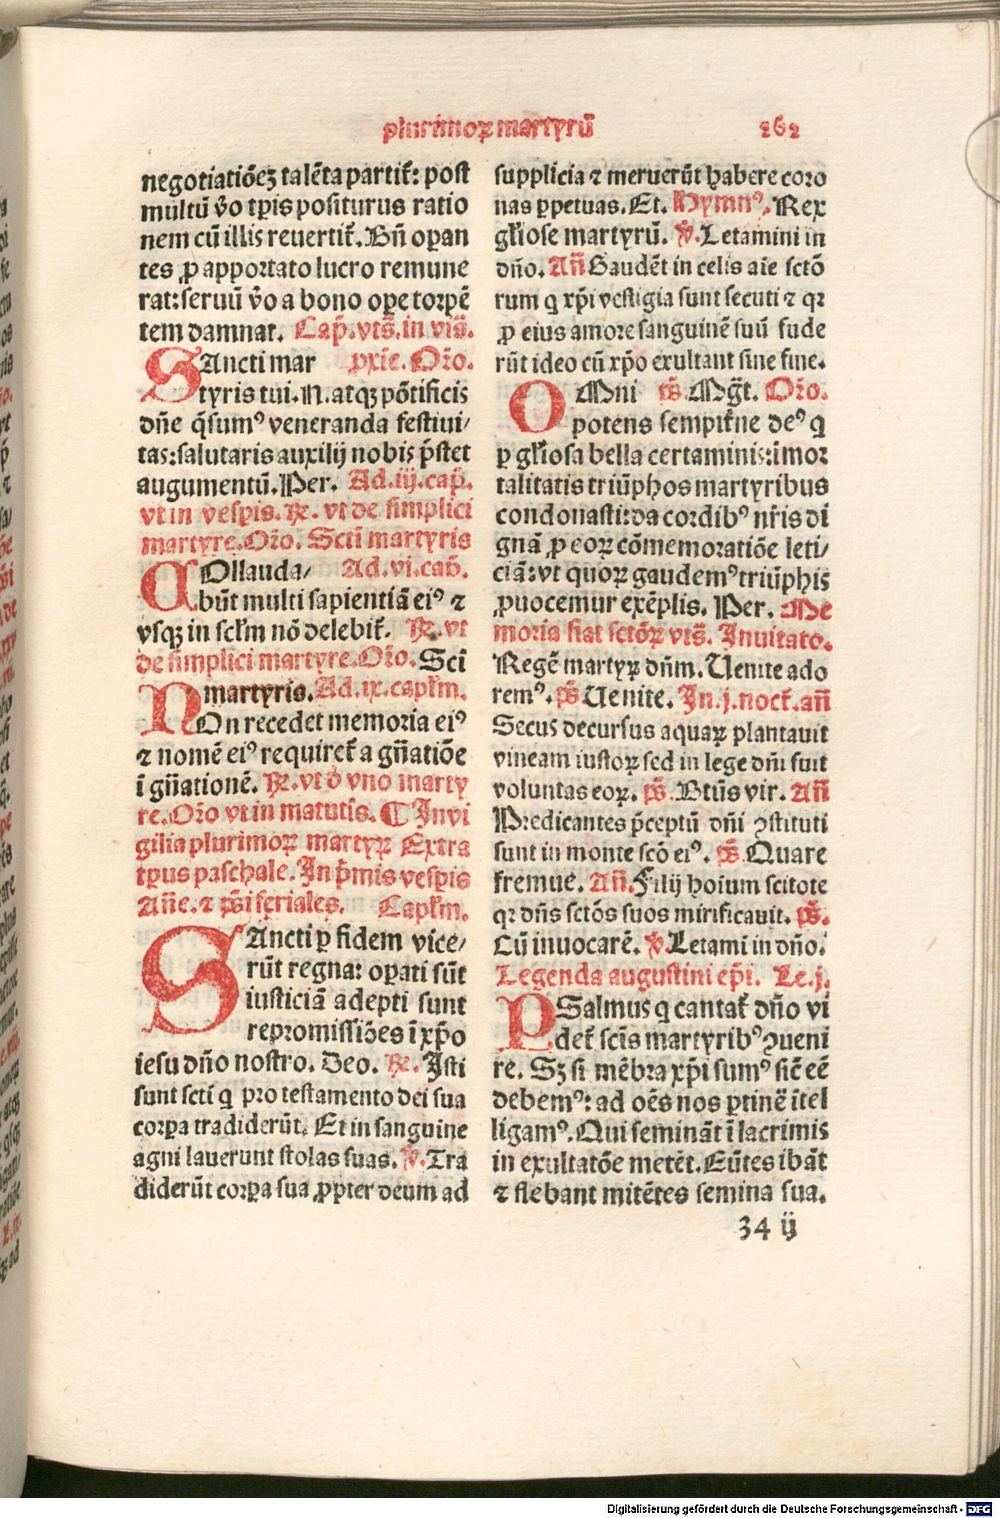 plurimoꝝ martyrū 262
negotiatiōeꝫ talēta partit᷑: post
multū v̊o tp̄is positurus ratio
nem cū illis reuertit᷑. Bn̄ oꝑan
tes ꝓ apportato lucro remune
rat: seruū v̊o a bono oꝑe torpē
tem damnat. Cap̄. vts̄. in vis̄.
SAncti mar pxie. Or̄o.
tyris tui. N. atqꝫ pōtificis
dn̄e q̄sumꝰ veneranda festiui/
tas: salutaris auxilij nobis p̄stet
augumentū. Per. Ad. iij. cap̄.
vt in vesp̄is. ꝶ. vt de simplici
martyre. Or̄o. Sctī martyris
COllauda/ Ad. vi. cap̄.
būt multi sapientiā eiꝰ ⁊
vsqꝫ in sclm̄ nō delebit᷑. ꝶ. vt
de simplici martyre. Or̄o. Scī
martyris. Ad. ix. caplm̄.
NOn recedet memoria eiꝰ
⁊ nomē eiꝰ requiret᷑ a gn̄atiōe
ī gn̄ationē. ꝶ. vt d̄ vno marty
re. Or̄o vt in matutīs. ¶ In vi
gilia plurimoꝝ martyꝝ Extra
tp̄us paschale. In p̄mis vesp̄is
An̄e. ⁊ ps̄i feriales. Caplm̄.
SAncti ꝑ fidem vice/
rūt regna: oꝑati sūt
iusticiā adepti sunt
repromissiōes ī xp̄o
iesu dn̄o nostro. Deo. ꝶ. Isti
sunt sctī q̄ pro testamento dei sua
corꝑa tradiderūt. Et in sanguine
agni lauerunt stolas suas. ℣. Tra
diderūt corꝑa sua ꝓpter deum ad
supplicia ⁊ meruerūt habere coro
nas ꝑpetuas. Et. Hymnꝰ. Rex
glīose martyrū. ℣. Letamini in
dn̄o. An̄ Gaudēt in celis aīe sctō
rum q̄ xp̄i vestigia sunt secuti ⁊ qꝛ
ꝓ eius amore sanguinē suū fude
rūt ideo cū xp̄o exultant sine fine.
OMni ps̄. Mg̃t. Or̄o.
potens sempit᷑ne deꝰ q̄
ꝑ glīosa bella certaminis: imor
talitatis triūphos martyribus
condonasti: da cordibꝰ nr̄is di
gnā ꝓ eoꝝ cōmemoratiōe leti/
ciā: vt quoꝝ gaudemꝰ triūphis
ꝓuocemur exēplis. Per. Me
moria fiat sctōꝝ vts̄. Inuitato.
Regē martyꝝ dn̄m. Uenite ado
remꝰ. ps̄ Uenite. In. j. noct᷑. an̄
Secus decursus aquaꝝ plantauit
vineam iustoꝝ sed in lege dn̄i fuit
voluntas eoꝝ. ps̄. Btūs vir. An̄
Predicantes p̄ceptū dn̄i ꝯstituti
sunt in monte scō eiꝰ. ps̄. Quare
fremue. An̄. Filij hoīum scitote
qꝛ dn̄s sctōs suos mirificauit. ps̄.
Cū inuocarē. ℣ Letami in dn̄o.
Legenda augustini ep̄i. Le. j.
PSalmus q̄ cantat᷑ dn̄o vi
det᷑ scīs martyribꝰ ꝯueni
re. Sꝫ si mēbra xp̄i sumꝰ sic̄ eē
debemꝰ: ad oēs nos ꝑtinē ītel
ligamꝰ. Qui semināt ī lacrimis
in exultatōe metēt. Eūtes ibāt
⁊ flebant mitētes semina sua.
34 ij
Digitalisierung gefördert durch die Deutsche Forschungsgemeinschaft - DFG